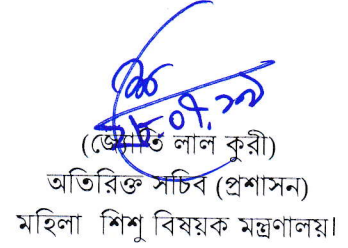 (জ্যোতি লাল কুরী)
অতিরিক্ত সচিব (প্রশাসন)
মহিলা শিশু বিষয়ক মন্ত্রণালয়।